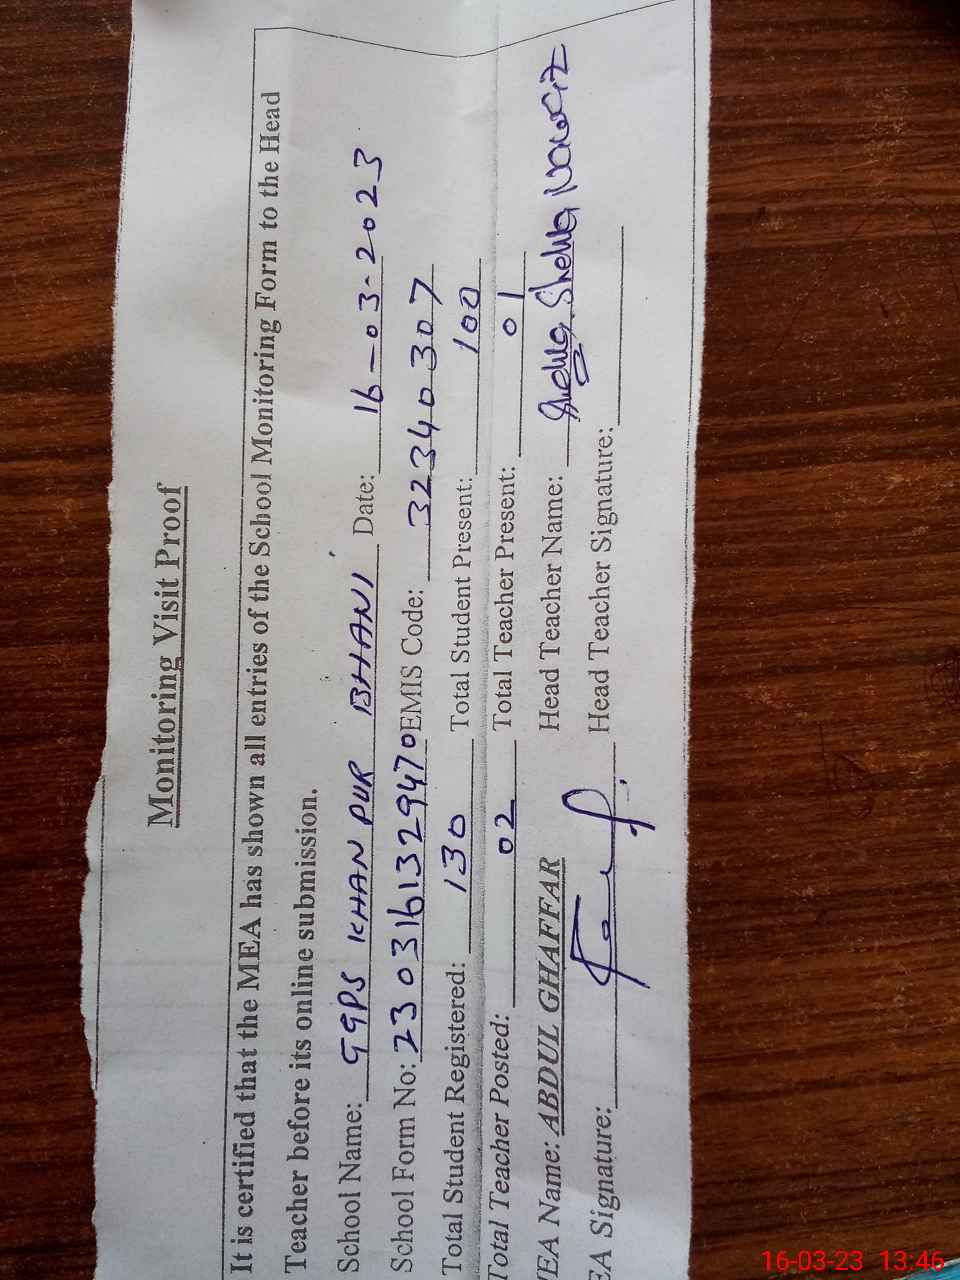 Monitoring Visit Proof
It is certified that the MEA has shown all entries of the School Monitoring Form to the Head
Teacher before its online submission.
School Name: GGPS KHAN PUR BHANI Date: 16-03-2023
School Form No: 2303161329470 EMIS Code: 32340307
Total Student Registered: 130 Total Student Present: 100
Total Teacher Posted: 02 Total Teacher Present: 01
MEA Name: ABDUL GHAFFAR Head Teacher Name: Shehla
EA Signature: Head Teacher Signature:
16-03-23 13:46